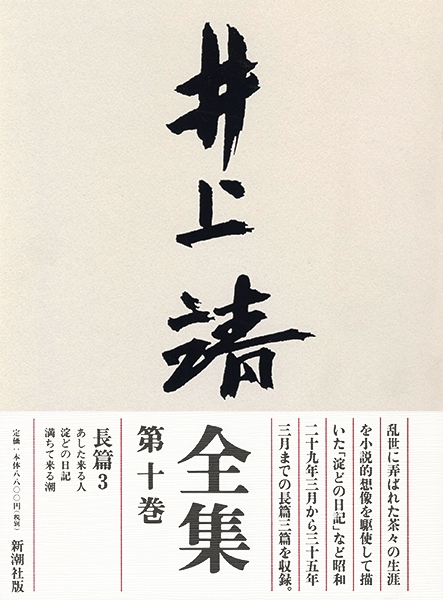 井上靖
全集
第十巻
乱世に弄ばれた茶々の生涯
を小説的想像を駆使して描
いた「淀どの日記」など昭和
二十九年三月から三十五年
三月までの長篇三篇を収録。
長篇3
あした来る人
淀どの日記
満ちて来る潮
定価:本体八八〇〇円(税別)
新潮社版